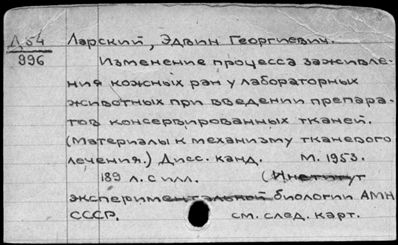 Д54
996
Ларский, Эдвин Георгиевич.
Изменение процесса заживле-
ния кожных ран у лабораторных
животных при введении препара-
тов консервированных тканей.
(Материалы к механизму тканевого
лечения.) Дисс. канд. М. 1953.
189 л. с илл. (Институт
экспериментальной биологии АМН
СССР. см. след. карт.